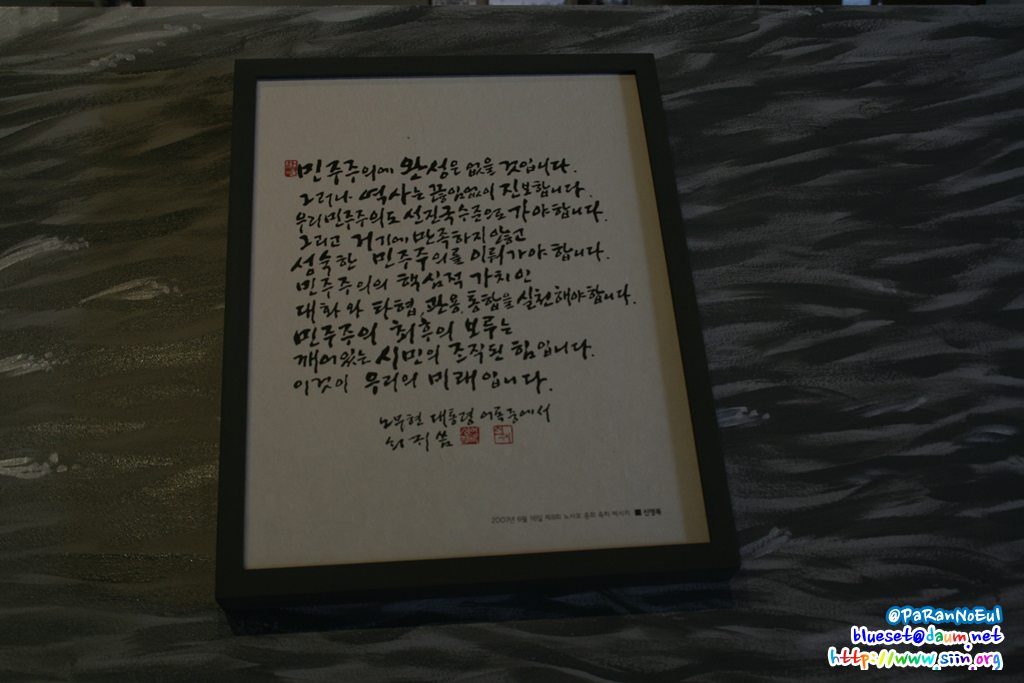 민주주의에 완성은 없을 것입니다.
그러나 역사는 끊임없이 진보합니다.
우리 민주주의도 선진국 수준으로 가야 합니다.
그리고 거기에 만족하지 않고
성숙한 민주주의를 이뤄가야 합니다.
민주주의의 핵심적 가치인
대화와 타협, 관용, 통합을 실천해야 합니다.
민주주의 최후의 보루는
깨어있는 시민의 조직된 힘입니다.
이것이 우리의 미래입니다.
노무현 대통령 어록중에서
쇠귀 씀
2007년 6월 16일 제8회 노사모 총회 축하 메시지 ■ 신영복
@PaRanNoEul
blueset@daum.net
http://www.siin.org